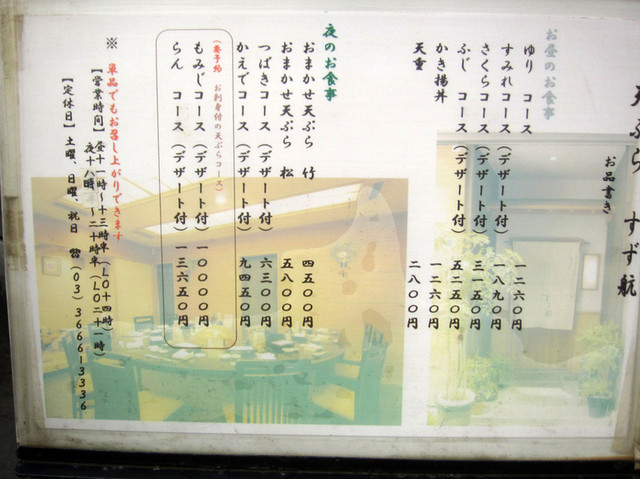 天ぷら すず航
お品書き
お昼のお食事
ゆり コース 一二六〇円
すみれコース(デザート付) 一八九〇円
さくらコース(デザート付) 三一五〇円
ふじ コース(デザート付) 五二五〇円
かき揚丼 一二六〇円
天重 二八〇〇円
夜のお食事
おまかせ天ぷら 竹 四五〇〇円
おまかせ天ぷら 松 五八〇〇円
つばきコース(デザート付) 六三〇〇円
かえでコース(デザート付) 九四五〇円
(要予約 お刺身付の天ぷらコース)
もみじコース(デザート付) 一〇〇〇〇円
らん コース(デザート付) 一三六五〇円
※ 単品でもお召し上がりできます
【営業時間】昼十一時〜十三時半(LO十四時)
夜十八時〜二十時半(LO二十一時)
【定休日】土曜、日曜、祝日 ☎(03)3666-3336